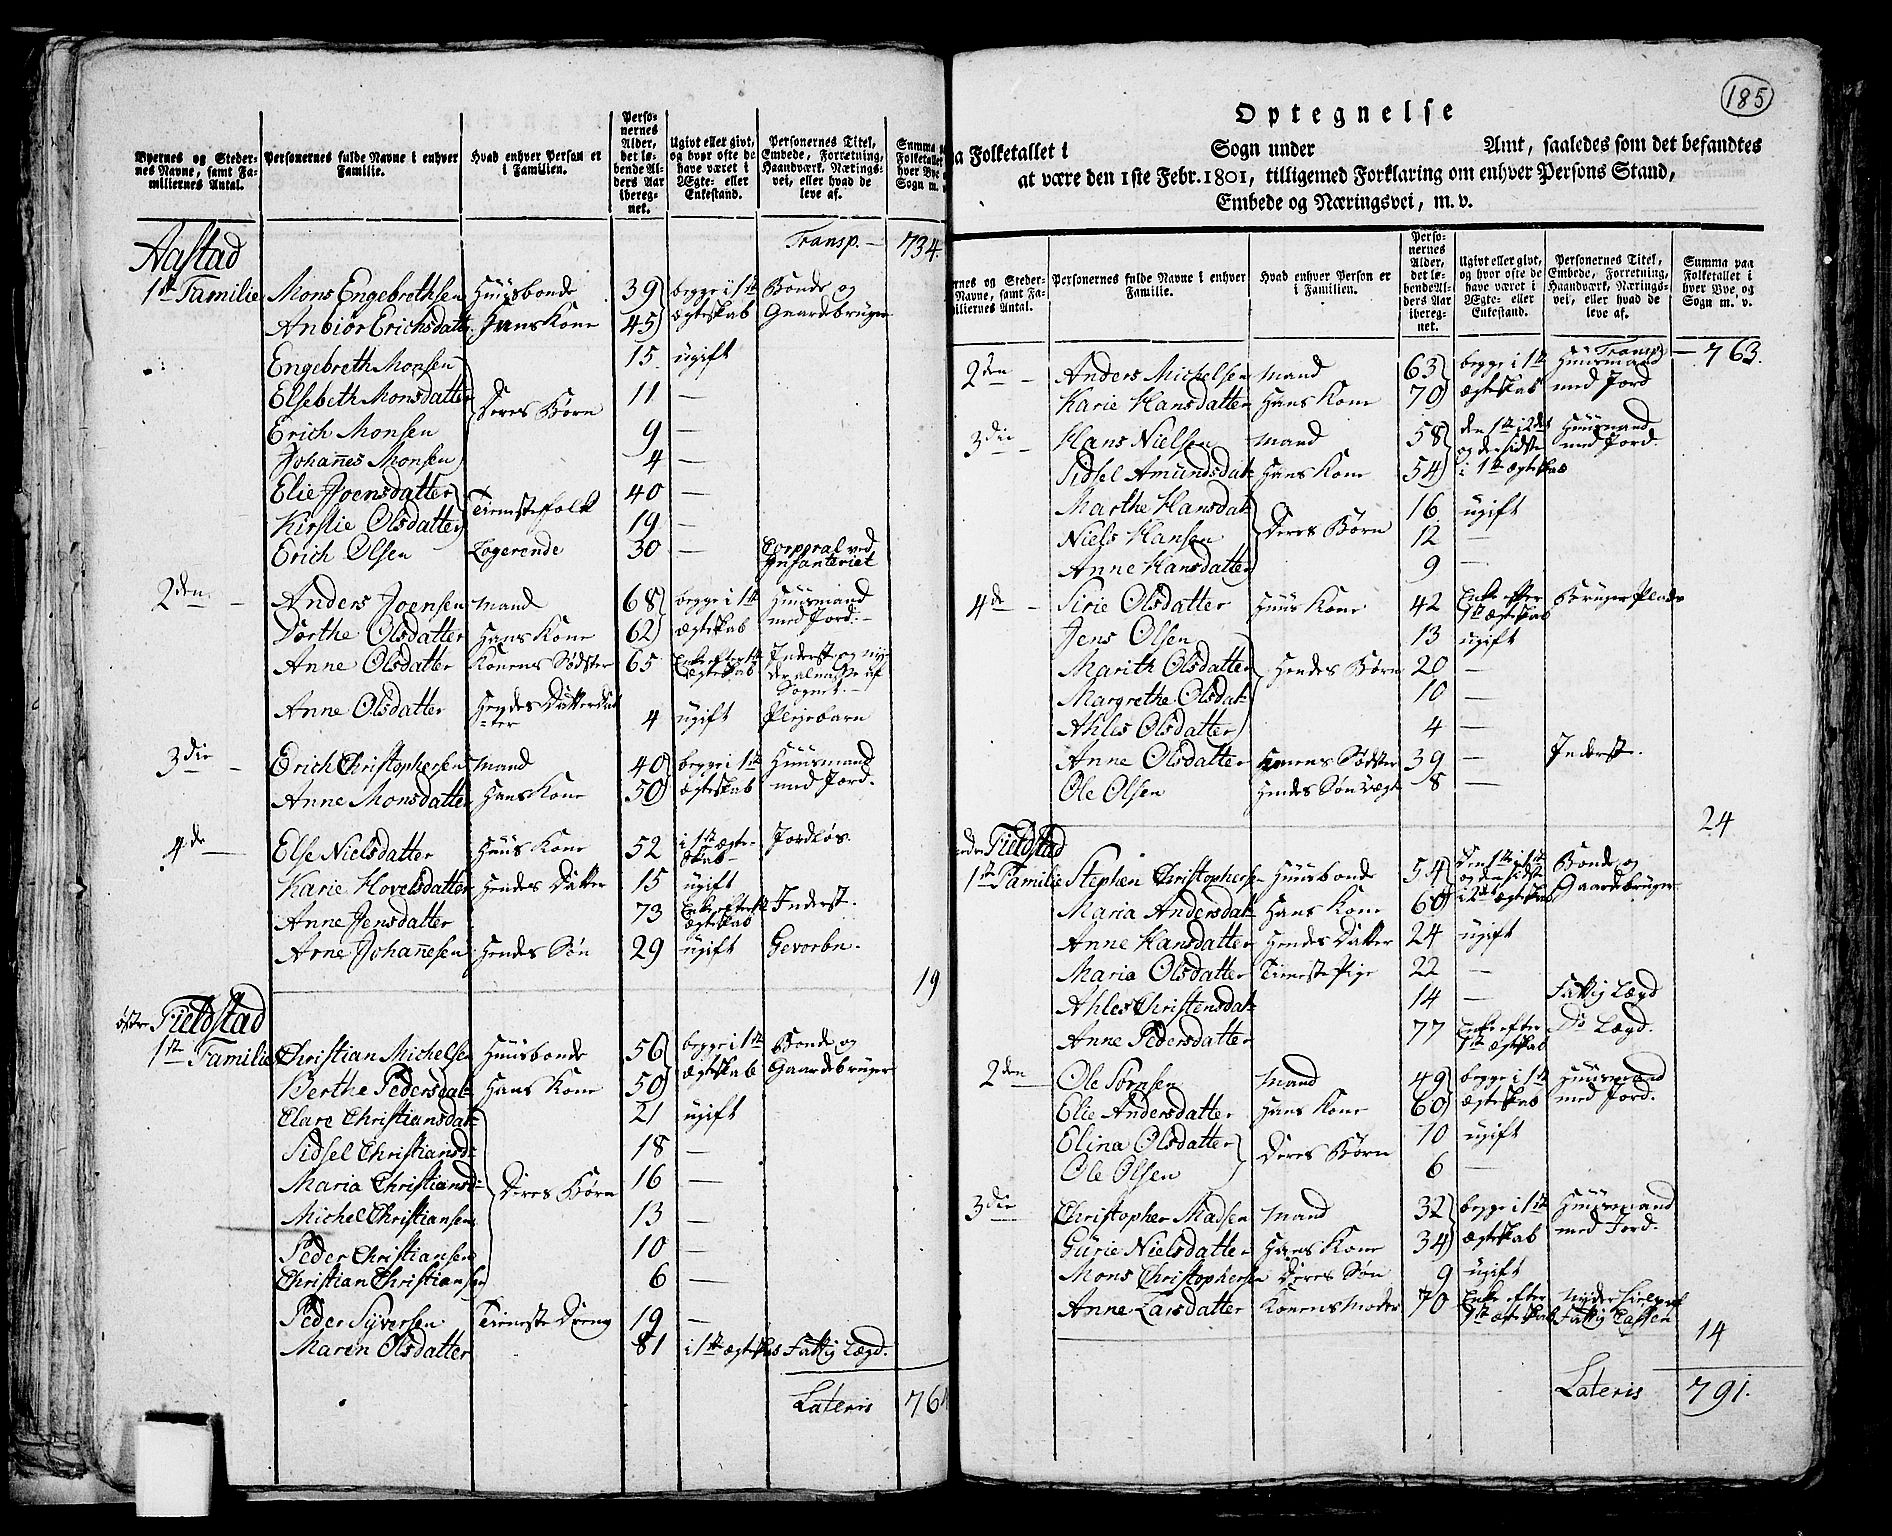 Byernes og Stedernes Navne, samt Familiernes Antal.
Personernes fulde Navne i enhver Familie.
Hvad enhver Person er i Familien.
Personernes Alder, det løbende Alders Aar iberegnet.
Ugivt eller givt, og hvor ofte de have været i Ægte- eller Enkestand.
Personernes Titel, Embede, Forretning, Haandværk, Næringsvei, eller hvad de leve af.
Summa
Folketallet
hver Bye
Sogn m.
Transp. — 734.
Aastad
1ste Familie Mons Engebrethsen Huusbonde 39 begge i 1ste Bonde og
Anbior Erichsdatter Hans Kone 45 ægteskab Gaardbruger
Engebreth Monsen 15 ugift
Elsebeth Monsdatter Deres Børn 11 —
Erich Monsen 9 —
Johannes Monsen 4 —
Elie Joensdatter Tieneste folk 40 —
Kirstie Olsdatter 19 —
Erich Olsen Logerende 30 — Corporal ved Infanteriet
2den — Anders Joensen Mand 68 begge i 1ste Huusmand
Dorthe Olsdatter Hans Kone 62 ægteskab med Jord. —
Anne Olsdatter Konens Södster 65 Enke efter 1ste Ægteskab Inderst og nyder almisse af Sognet. —
Anne Olsdatter Hendes Datterdatter 4 ugift Pleyebarn
3die — Erich Christophersen Mand 40 begge i 1ste Huusmand
Anne Monsdatter Hans Kone 50 ægteskab med Jord.
4de — Else Nielsdatter Huus Kone 52 i 1ste ægteskab — Jordløs.
Karie Hovelsdatter Hendes Datter 15 ugift
Anne Jensdatter 73 Enke efter 1ste ægteskab Inderst.
Arne Johannesen Hendes Søn 29 ugift Gevorben.
19
östre Fieldstad
1ste Familie Christian Michelsen Huusbonde 56 begge i 1ste Bonde og
Berthe Pedersdat- Hans Kone 50 ægteskab Gaardbruger
Clare Christiansdat- 21 ugift
Sidsel Christiansd: 18 —
Maria Christiansd- Deres Børn 16 —
Michel Christiansen 13 —
Peder Christiansen 10 —
Christian Christiansen 6 —
Peder Syversen Tieneste Dreng 19 —
Maren Olsdatter 81 i 1ste ægteskab Fattig Lægd.
Lateris 76
185
Optegnelse
Folketallet i Sogn under Amt, saaledes som det befandtes
at være den 1ste Febr. 1801, tilligemed Forklaring om enhver Persons Stand,
Embede og Næringsvei, m. v.
rnes og Steder-
Navne, samt Fa-
miliernes Antal.
Personernes fulde Navne i enhver Familie.
Hvad enhver Person er i Familien.
Personernes Alder, det løbende Alders Aar iberegnet.
Ugivt eller givt, og hvor ofte de have været i Ægte- eller Enkestand.
Personernes Titel, Embede, Forretning, Haandværk, Næringsvei, eller hvad de leve af.
Summa paa Folketallet i hver Bye og Sogn m. v.
Transp. — 763.
2den — Anders Michelsen Mand 63 begge i 1ste Huusmand
Karie Hansdatter Hans Kone 70 ægteskab med Jord
3die — Hans Nielsen Mand 58 den 1ste i 2det Huusmand
Sidsel Amundsdat- Hans Kone 54 og den sidste i 1ste ægteskab med Jord.
Marthe Hansdat- 16 ugift
Niels Hansen Deres Børn 12 —
Anne Hansdatter 9 —
4de — Sirie Olsdatter Huus Kone 42 Enke efter 1ste ægteskab Bruger Pladsen
Jens Olsen 13 ugift
Marith Olsdatter Hendes Børn 20 —
Margrethe Olsdat- 10 —
Ahles Olsdatter 4 —
Anne Olsdatter Konens Södster 39 — Inderst.
Ole Olsen Hendes Søn uægte 8 —
24
Fieldstad
1ste Familie Stephen Christophersen Huusbonde 54 Den 1ste i 1ste Bonde og
Maria Andersdat- Hans Kone 60 og den sidste i 2det ægteskab Gaardbruger
Anne Hansdatter Hendes Datter 24 ugift
Maria Olsdatter Tieneste Pige 22 —
Ahles Christensdat- 14 — Fattig Lægd
Anne Pedersdatter 77 Enke efter 1ste ægteskab Do Lægd.
2den — Ole Sørnsen Mand 49 begge i 1ste Huusmand
Elie Andersdatter Hans Kone 60 ægteskab med Jord.
Elina Olsdatter Deres Børn 10 ugift
Ole Olsen 6 —
3die — Christopher Madsen Mand 32 begge i 1ste Huusmand
Gurie Nielsdatter Hans Kone 34 ægteskab med Jord.
Mons Christophersen Deres Søn 9 ugift
Anne Larsdatter Konens Moder 70 Enke efter 1ste ægteskab nyder hielp af Fattig Cassen
14
Lateris 791.